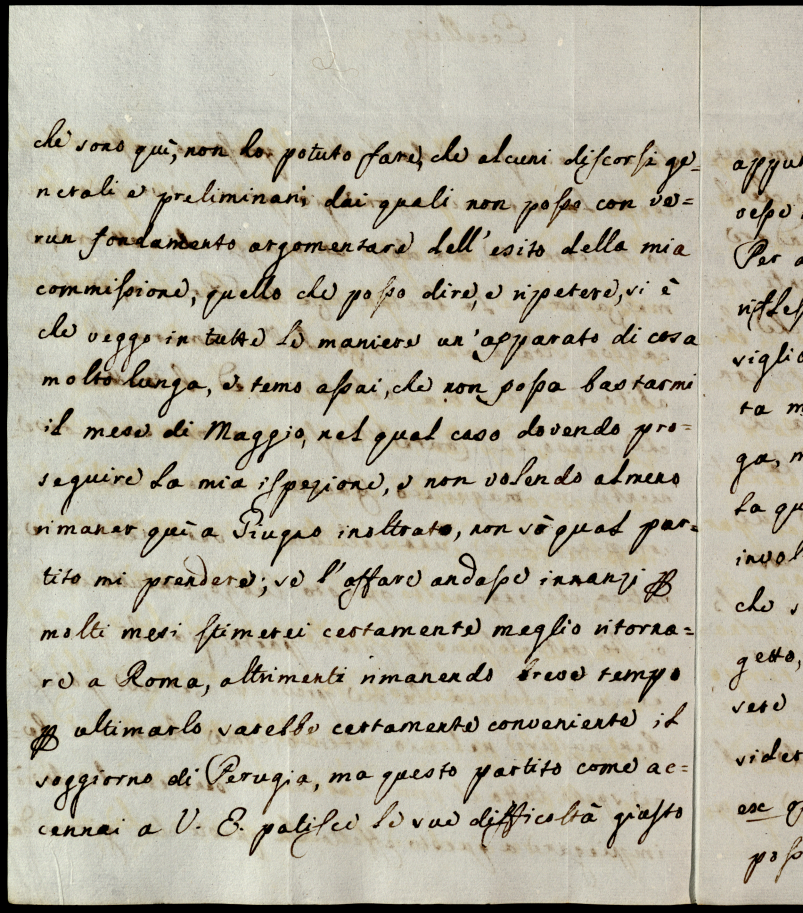 che sono quì, non ho potuto fare, che alcuni discorsi ge=
nerali e preliminari, dai quali non posso con ve=
run fondamento argomentare dell'esito della mia
commissione, quello che posso dire, e ripetere, si è
che veggo in tutte le maniere un'apparato di cosa
molto lunga, e temo assai, che non possa bastarmi
il mese di Maggio, nel qual caso dovendo pro=
seguire la mia ispezione, e non volendo almeno
rimaner quì a Giugno inoltrato, non sò qual par=
tito mi prendere; se l'affare andasse innanzi ꝑ
molti mesi stimerei certamente meglio ritorna=
re a Roma, altrimenti rimanendo breve tempo
ꝑ ultimarlo sarebbe certamente conveniente il
soggiorno di Perugia, ma questo partito come ac=
cennai a V. E. patisce le sue difficoltà giusto
Per a
viglio
ta m
ga, m
la qu
invol
che s
getto,
vere
vider
poss